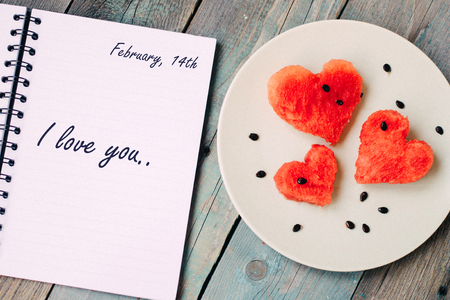 February, 14th
I love you..